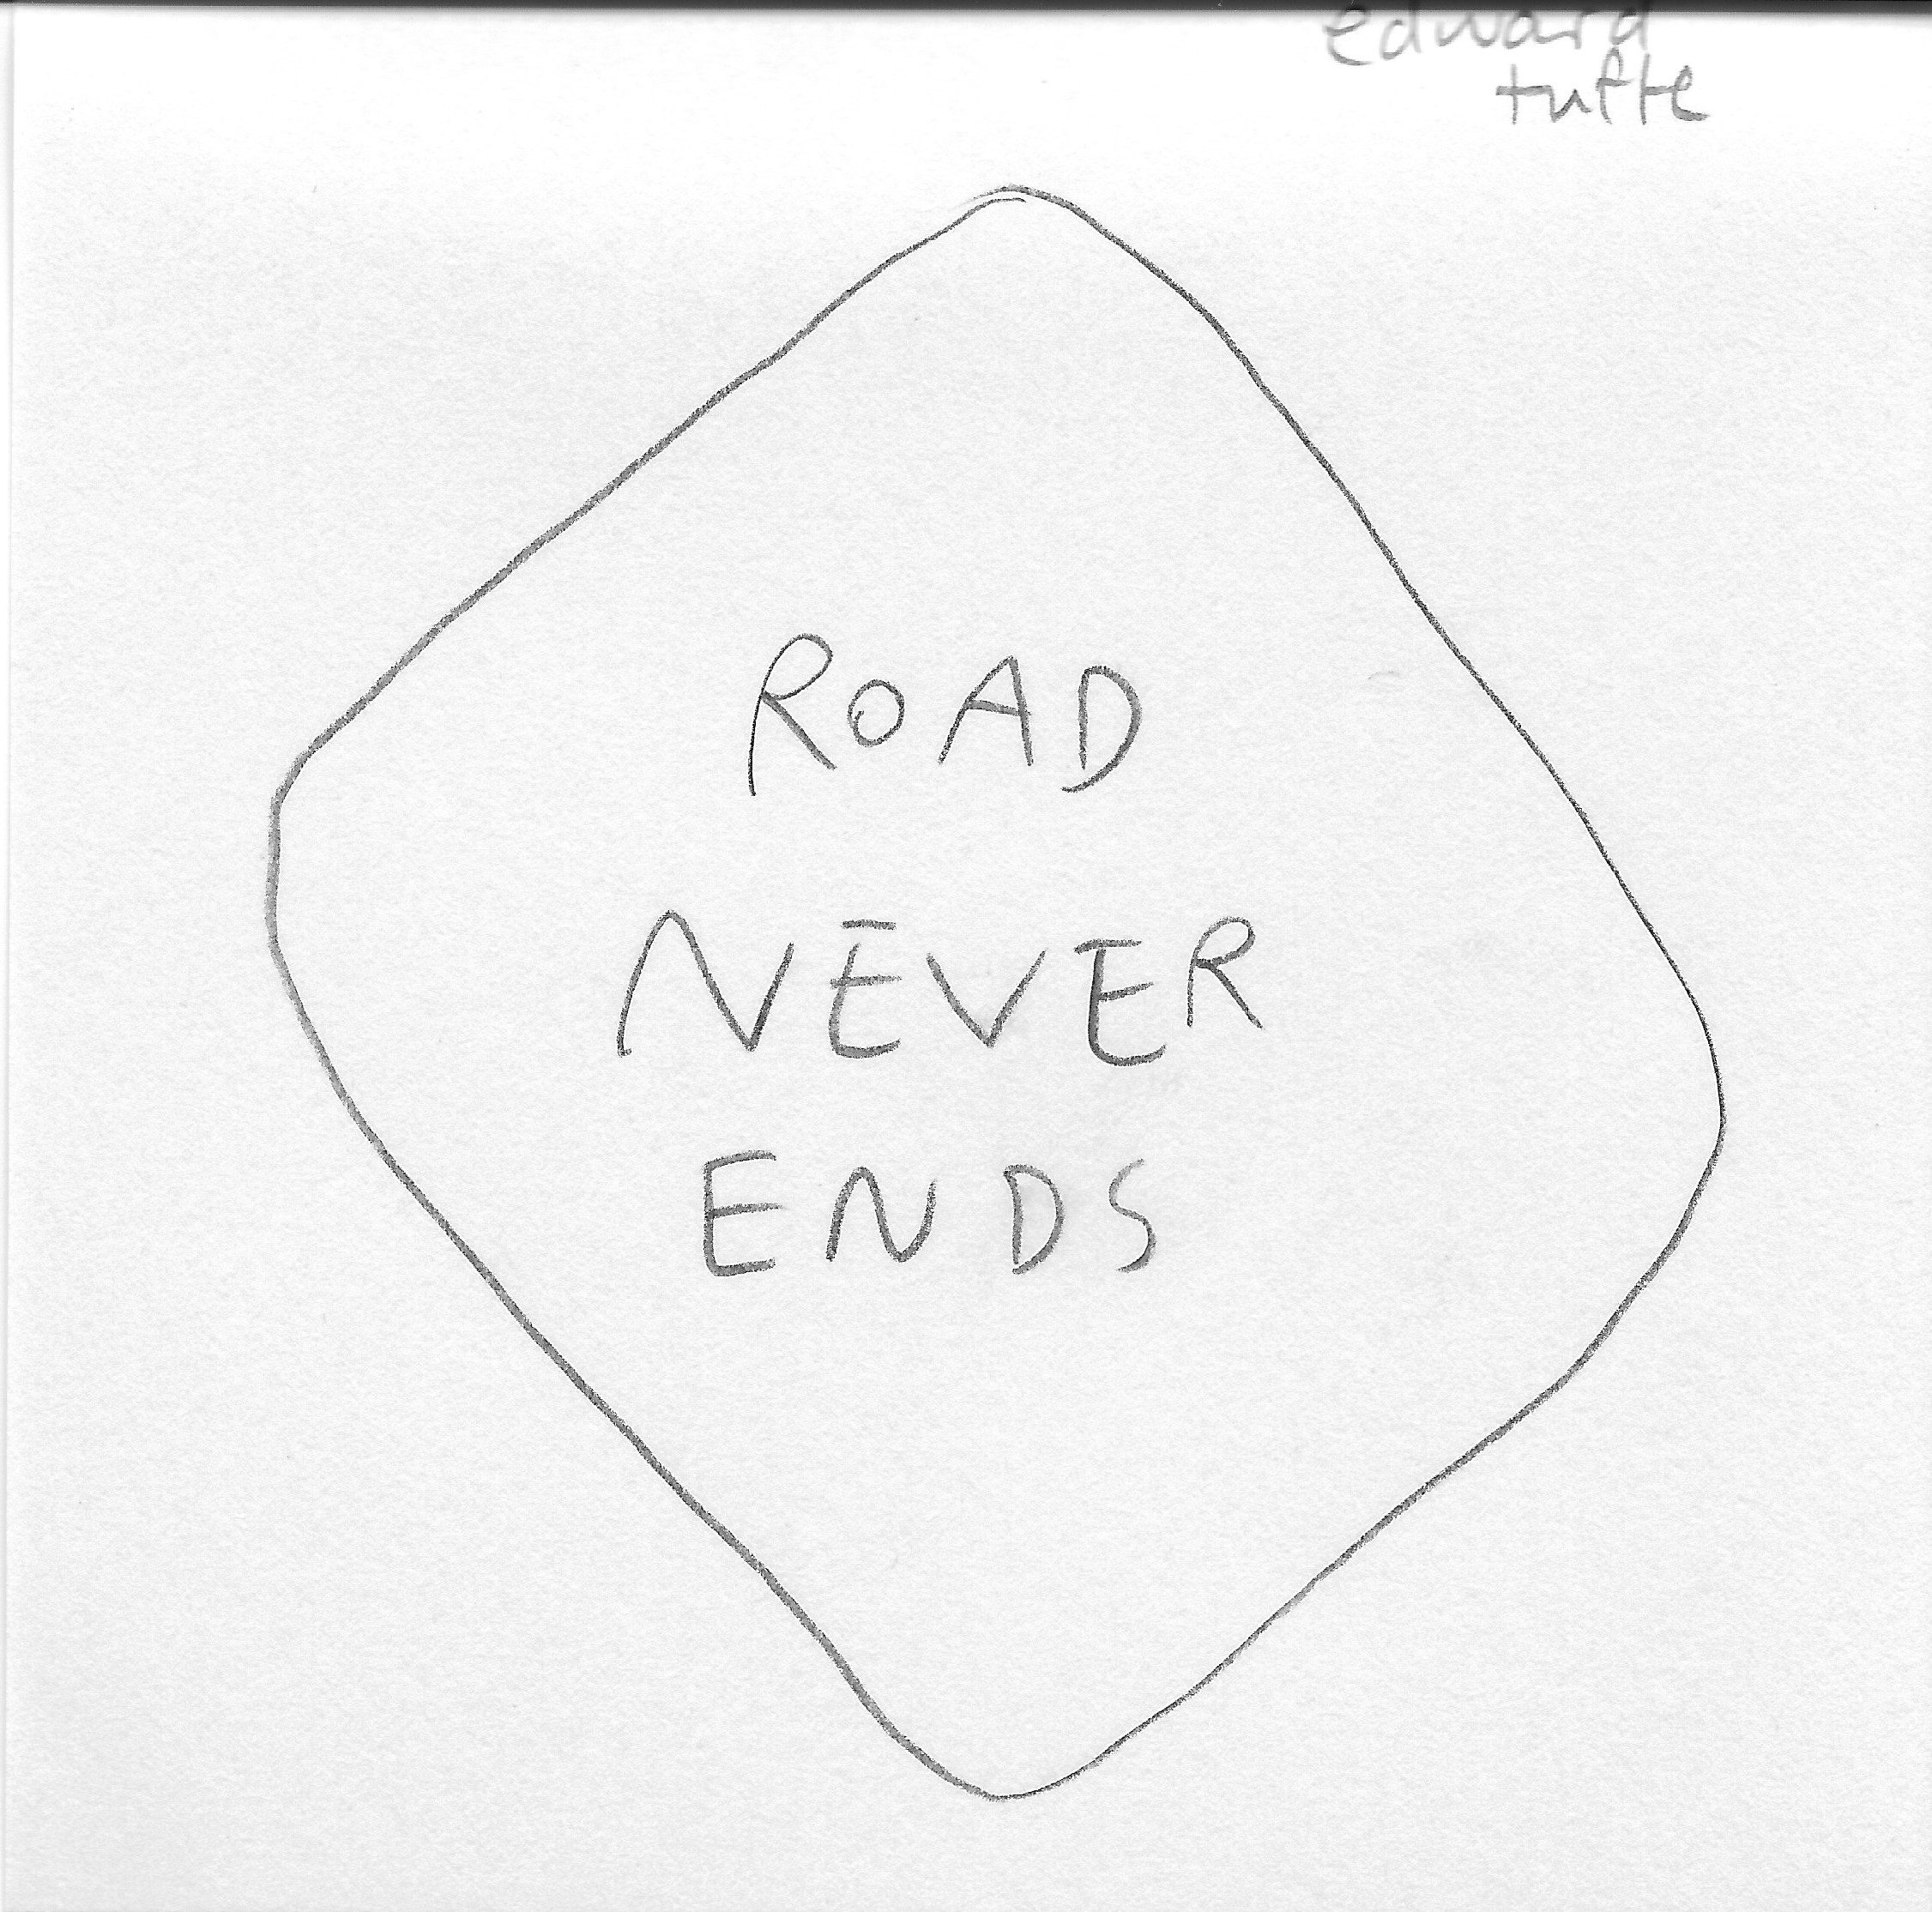 edward
tufte
ROAD
NEVER
ENDS